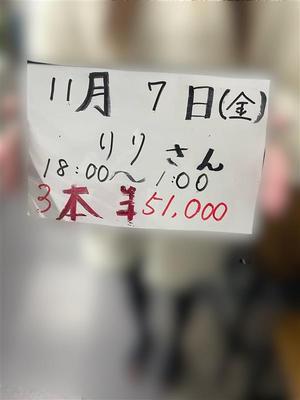 11月 7日(金)
りりさん
18:00〜1:00
3本¥51,000